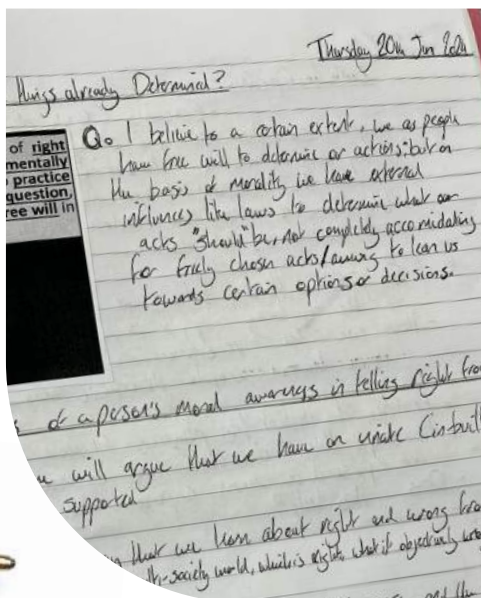 Thursday 20th Jun 2024
things already Determined?
of right
mentally
practice
question,
ree will in
Q. I believe to a certain extent, we as people
have free will to determine or actions; but on
the basis of morality we have external
influences like laws to determine what our
acts "should" be, not completely accomidating
for freely chosen acts/ to lean us
towards certain options or decisions.
of a person's moral awareness in telling right fro
will argue that we have an inate (inbuilt
supported
that we learn about right and wrong fro
society world, which is right, what is objectively
and the